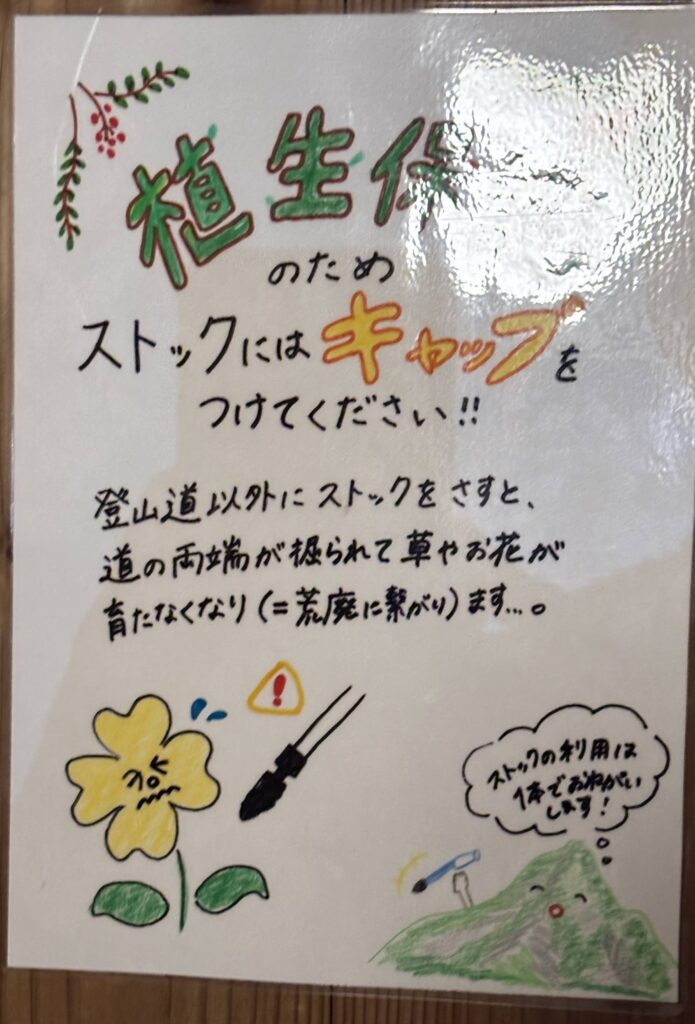 植生保
のため
ストックにはキャップを
つけてください!!
登山道以外にストックをさすと、
道の両端が掘られて草やお花が
育たなくなり(=荒廃に繋がり)ます…。
ストックの利用は
1本でおねがい
します!